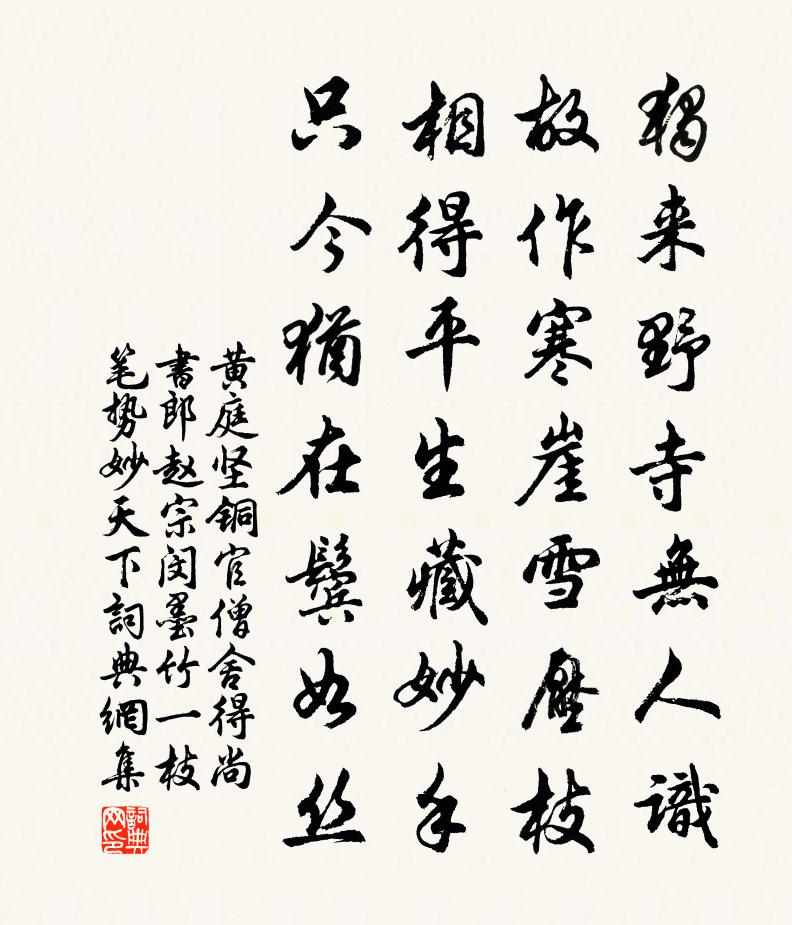 獨来野寺無人識
故作寒崖雪壓枝
相得平生藏妙手
只今猶在鬓如丝
黄庭坚铜官僧舍得尚
書郎赵宗闵墨竹一枝
笔势妙天下詞典網集
詞典
网印